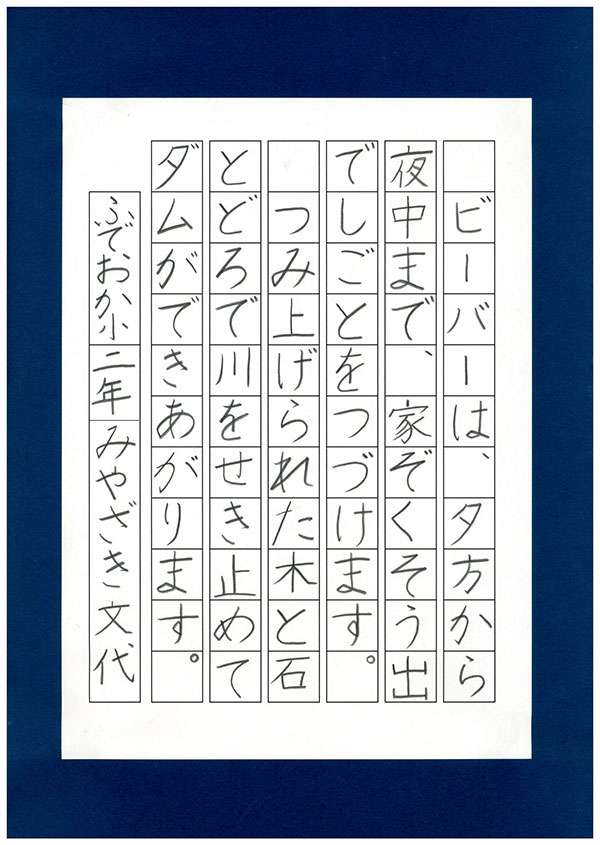 ビーバーは、夕方から
夜中まで、家ぞくそう出
でしごとをつづけます。
　つみ上げられた木と石
とどろで川をせき止めて
ダムができあがります。
ふでおか小 二年 みやざき文代